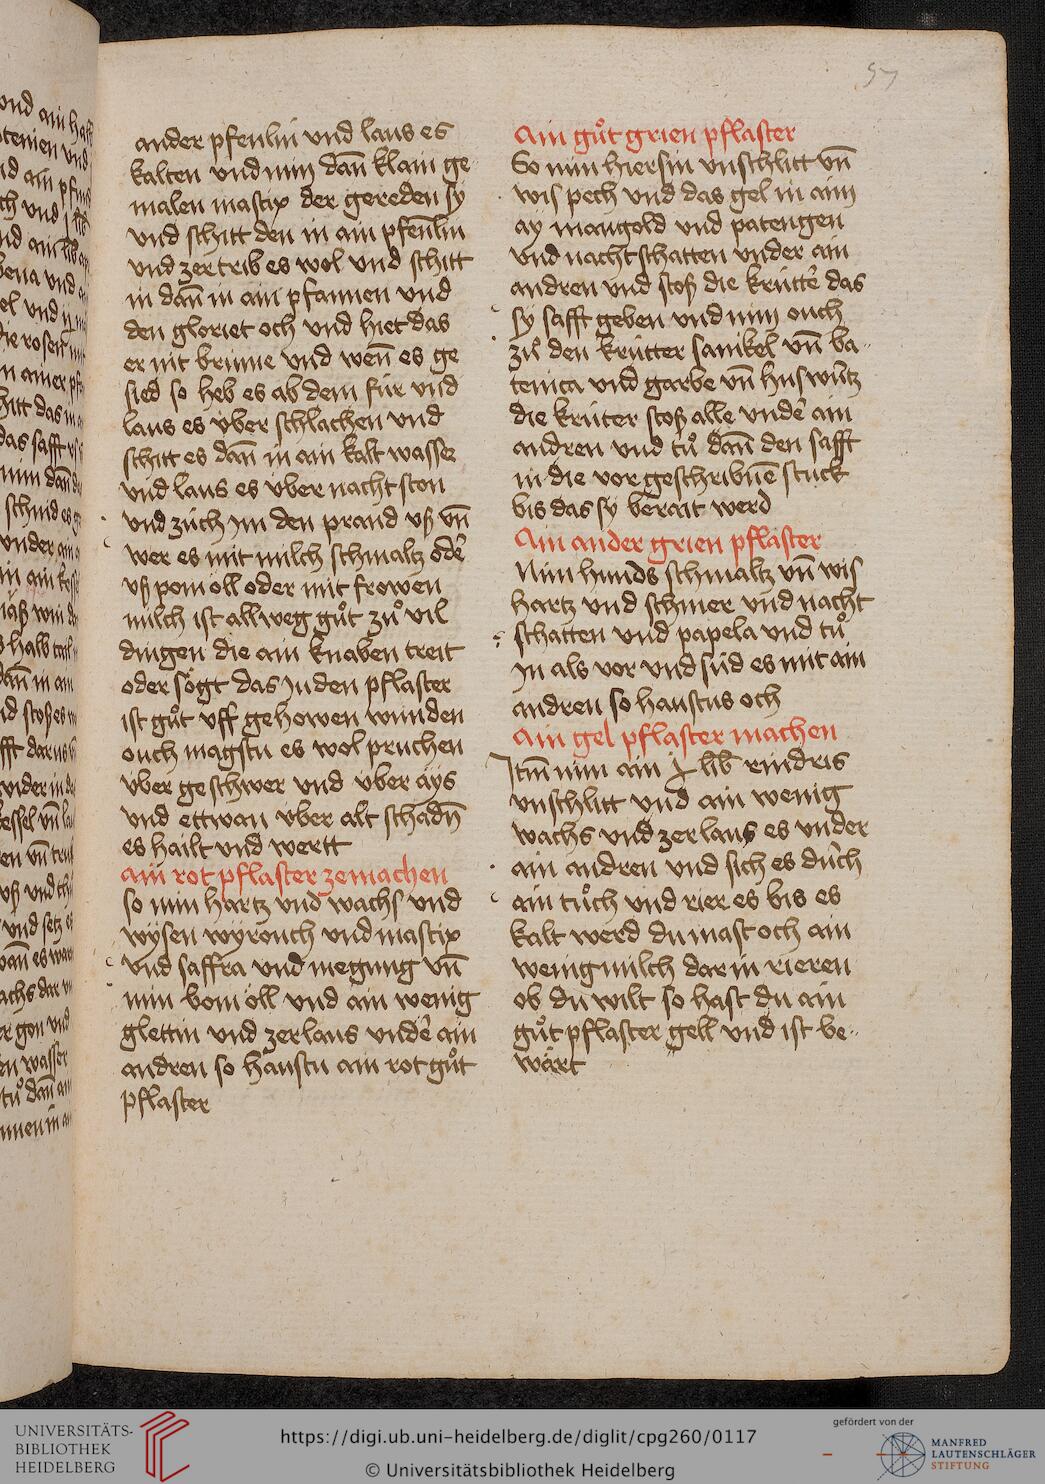 57
ander pfenlin vnd laus es
kalten vnd nim dañ klain ge
malen mastix der gereden sy
vnd schitt den in ain pfeñlin
vnd zertrib es wol vnd schitt
in dañ in ain pfannen vnd
den gloriet och vnd hiet das
er nit brinne vnd weñ es ge
sied so heb es ab dem für vnd
laus es v̈ber schlachen vnd
schitt es dañ in ain kalt wasser
vnd laus es vber nacht ston
vnd züch im den praid vß vñ
wer es mit milch schmaltz odē
vß pom öll oder mit frowen
milch ist allweg gůt zů vil
dingen die ain knaben treit
oder sögt das Juden pflaster
ist gůt vff gehowen wunden
ouch magstu es wol pruchen
v̈ber geschwer vnd vber äys
vnd ettwan v̈ber alt schadñ
es hailt vnd wertt
ain rot pflaster ze machen
so nim hartz vnd wachs vnd
wÿsen wyrouch vnd mastix
vnd saffra vnd megung vñ
nim bom öll vnd ain wenig
glettin vnd zerlaus vndē ain
andren so häustu ain rot gůt
pflaster
Ain gůt grien pflaster
So nim hiersin vnschlitt vñ
wis pech vnd das gel in aim
ay mangold vnd patengen
vnd nachtschatten vnder ain
andren vnd stoß die krüttē das
sy safft geben vnd nim ouch
zů den krütter sanikel vñ ba-
tenica vnd garbe vñ huswürtz
die krüter stoß alle vndē ain
andren vnd tů dañ den safft
in die vorgeschribnē stuck
bis das sy berait werd
Ain ander grien pflaster
Nim hunds schmaltz vñ wis
hartz vnd schmer vnd nacht
schatten vnd papela vnd tů
in als vor vnd süd es mit ain
andren so haustus och
Ain gel pflaster machen
Itm̄ nim ain lib̄ rindris
vnschlitt vnd ain wenig
wachs vnd zerlaus es vnder
ain andren vnd sich es dürch
ain tůch vnd rier es bis es
kalt werd du mast och ain
wenig milch dar in rieren
ob du wilt so hast du ain
gůt pflaster gell vnd ist be-
wärt
UNIVERSITÄTS-
BIBLIOTHEK
HEIDELBERG
https://digi.ub.uni-heidelberg.de/diglit/cpg260/0117
© Universitätsbibliothek Heidelberg
gefördert von der
MANFRED
LAUTENSCHLÄGER
STIFTUNG